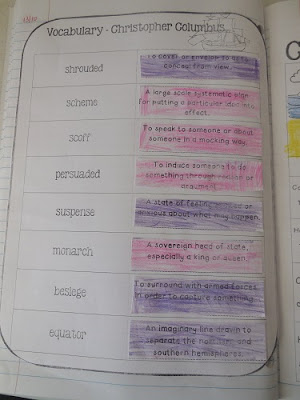 Vocabulary - Christopher Columbus
shrouded
To cover or envelop so as to
conceal from view.
scheme
A large scale systematic plan
for putting a particular idea into
effect.
scoff
To speak to someone or about
someone in a mocking way.
persuaded
To induce someone to do
something through
suspense
A state of feeling
anxious about what may happen.
monarch
A sovereign head of state,
especially a king or queen.
besiege
To surround with armed forces
in order to capture something.
equator
An imaginary line drawn to
separate the northern and
southern hemispheres.